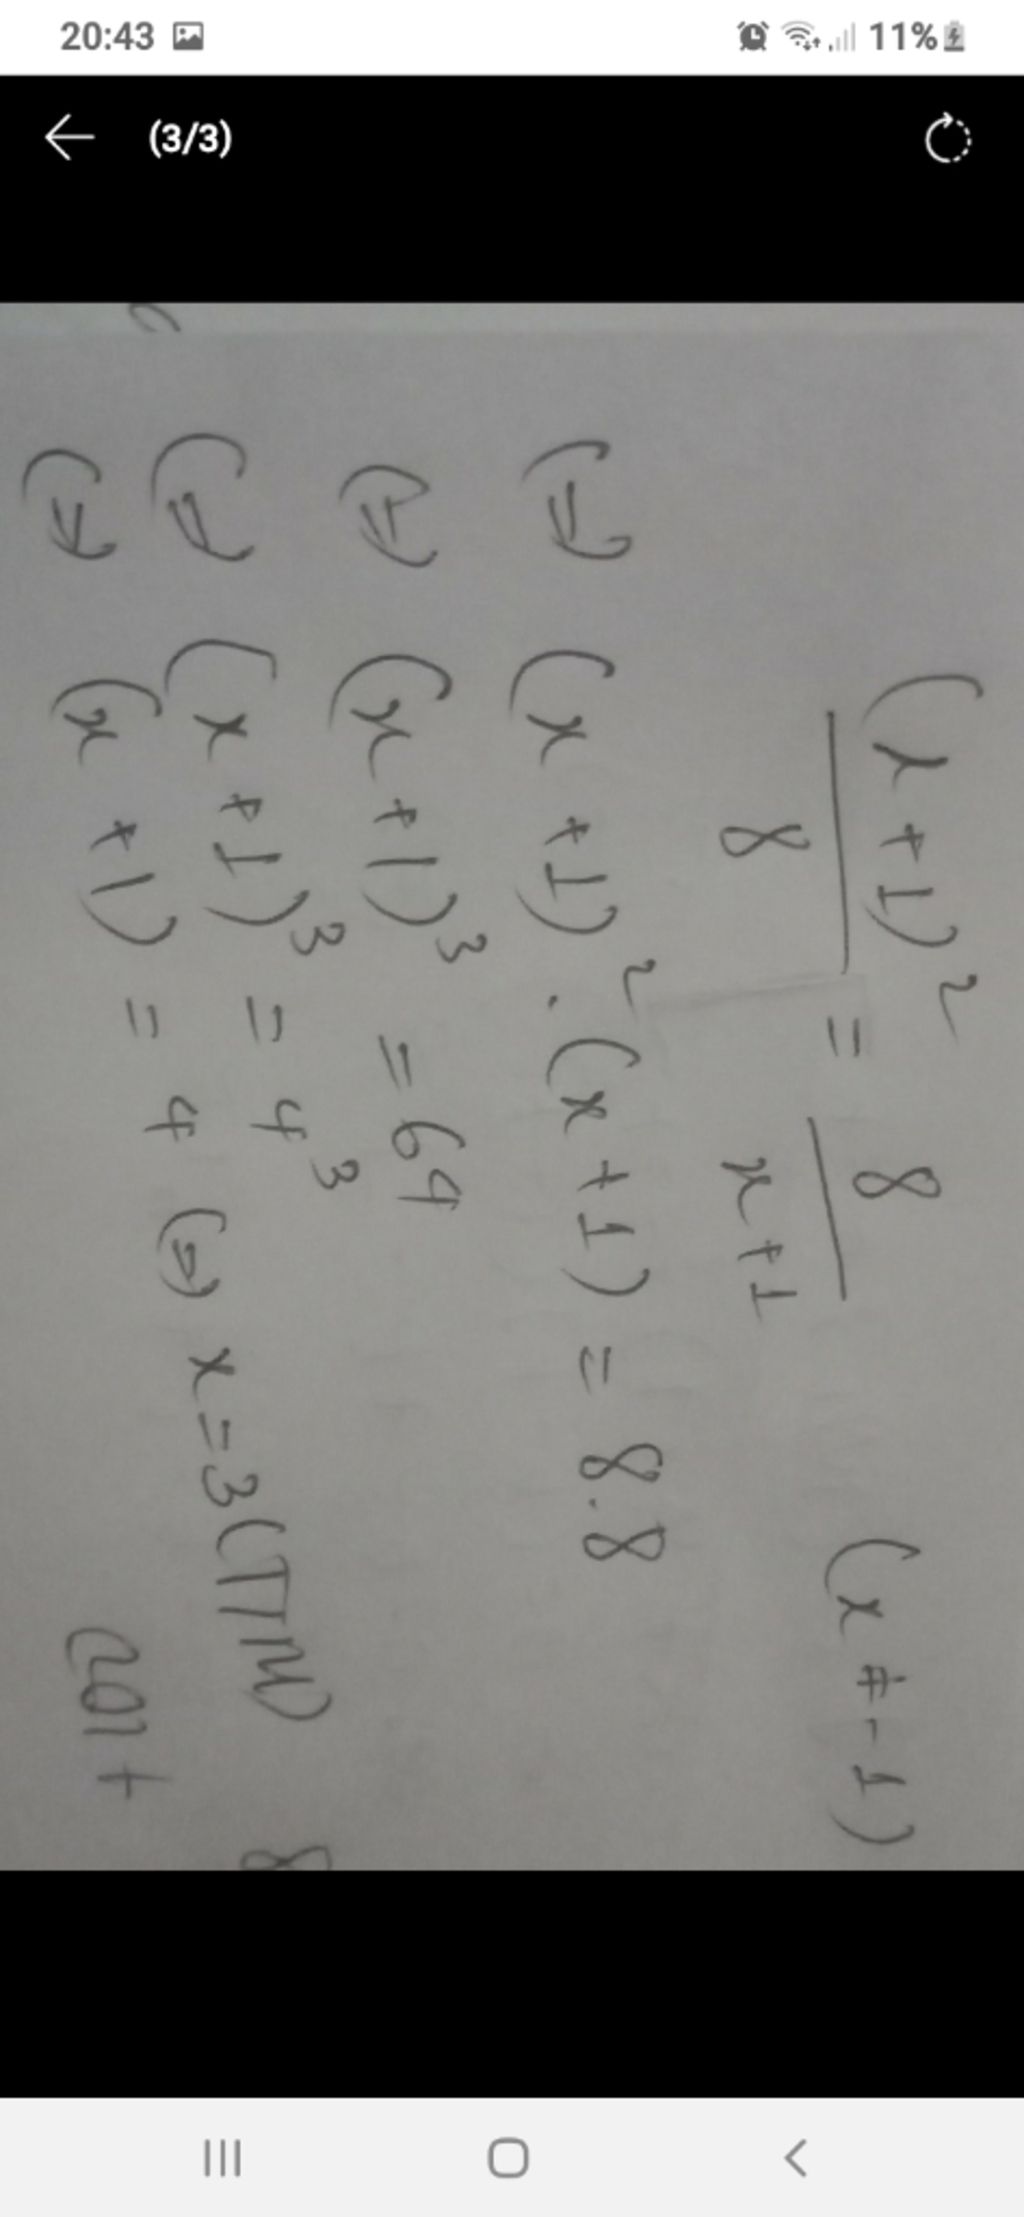 20:43
11%
(3/3)
(x+1)² / 8 = 8 / x+1 (x ≠ -1)
(=) (x+1)² . (x+1) = 8.8
(=) (x+1)³ = 64
(=) (x+1)³ = 4³
(=) (x+1) = 4 (=) x=3(TTM)
8